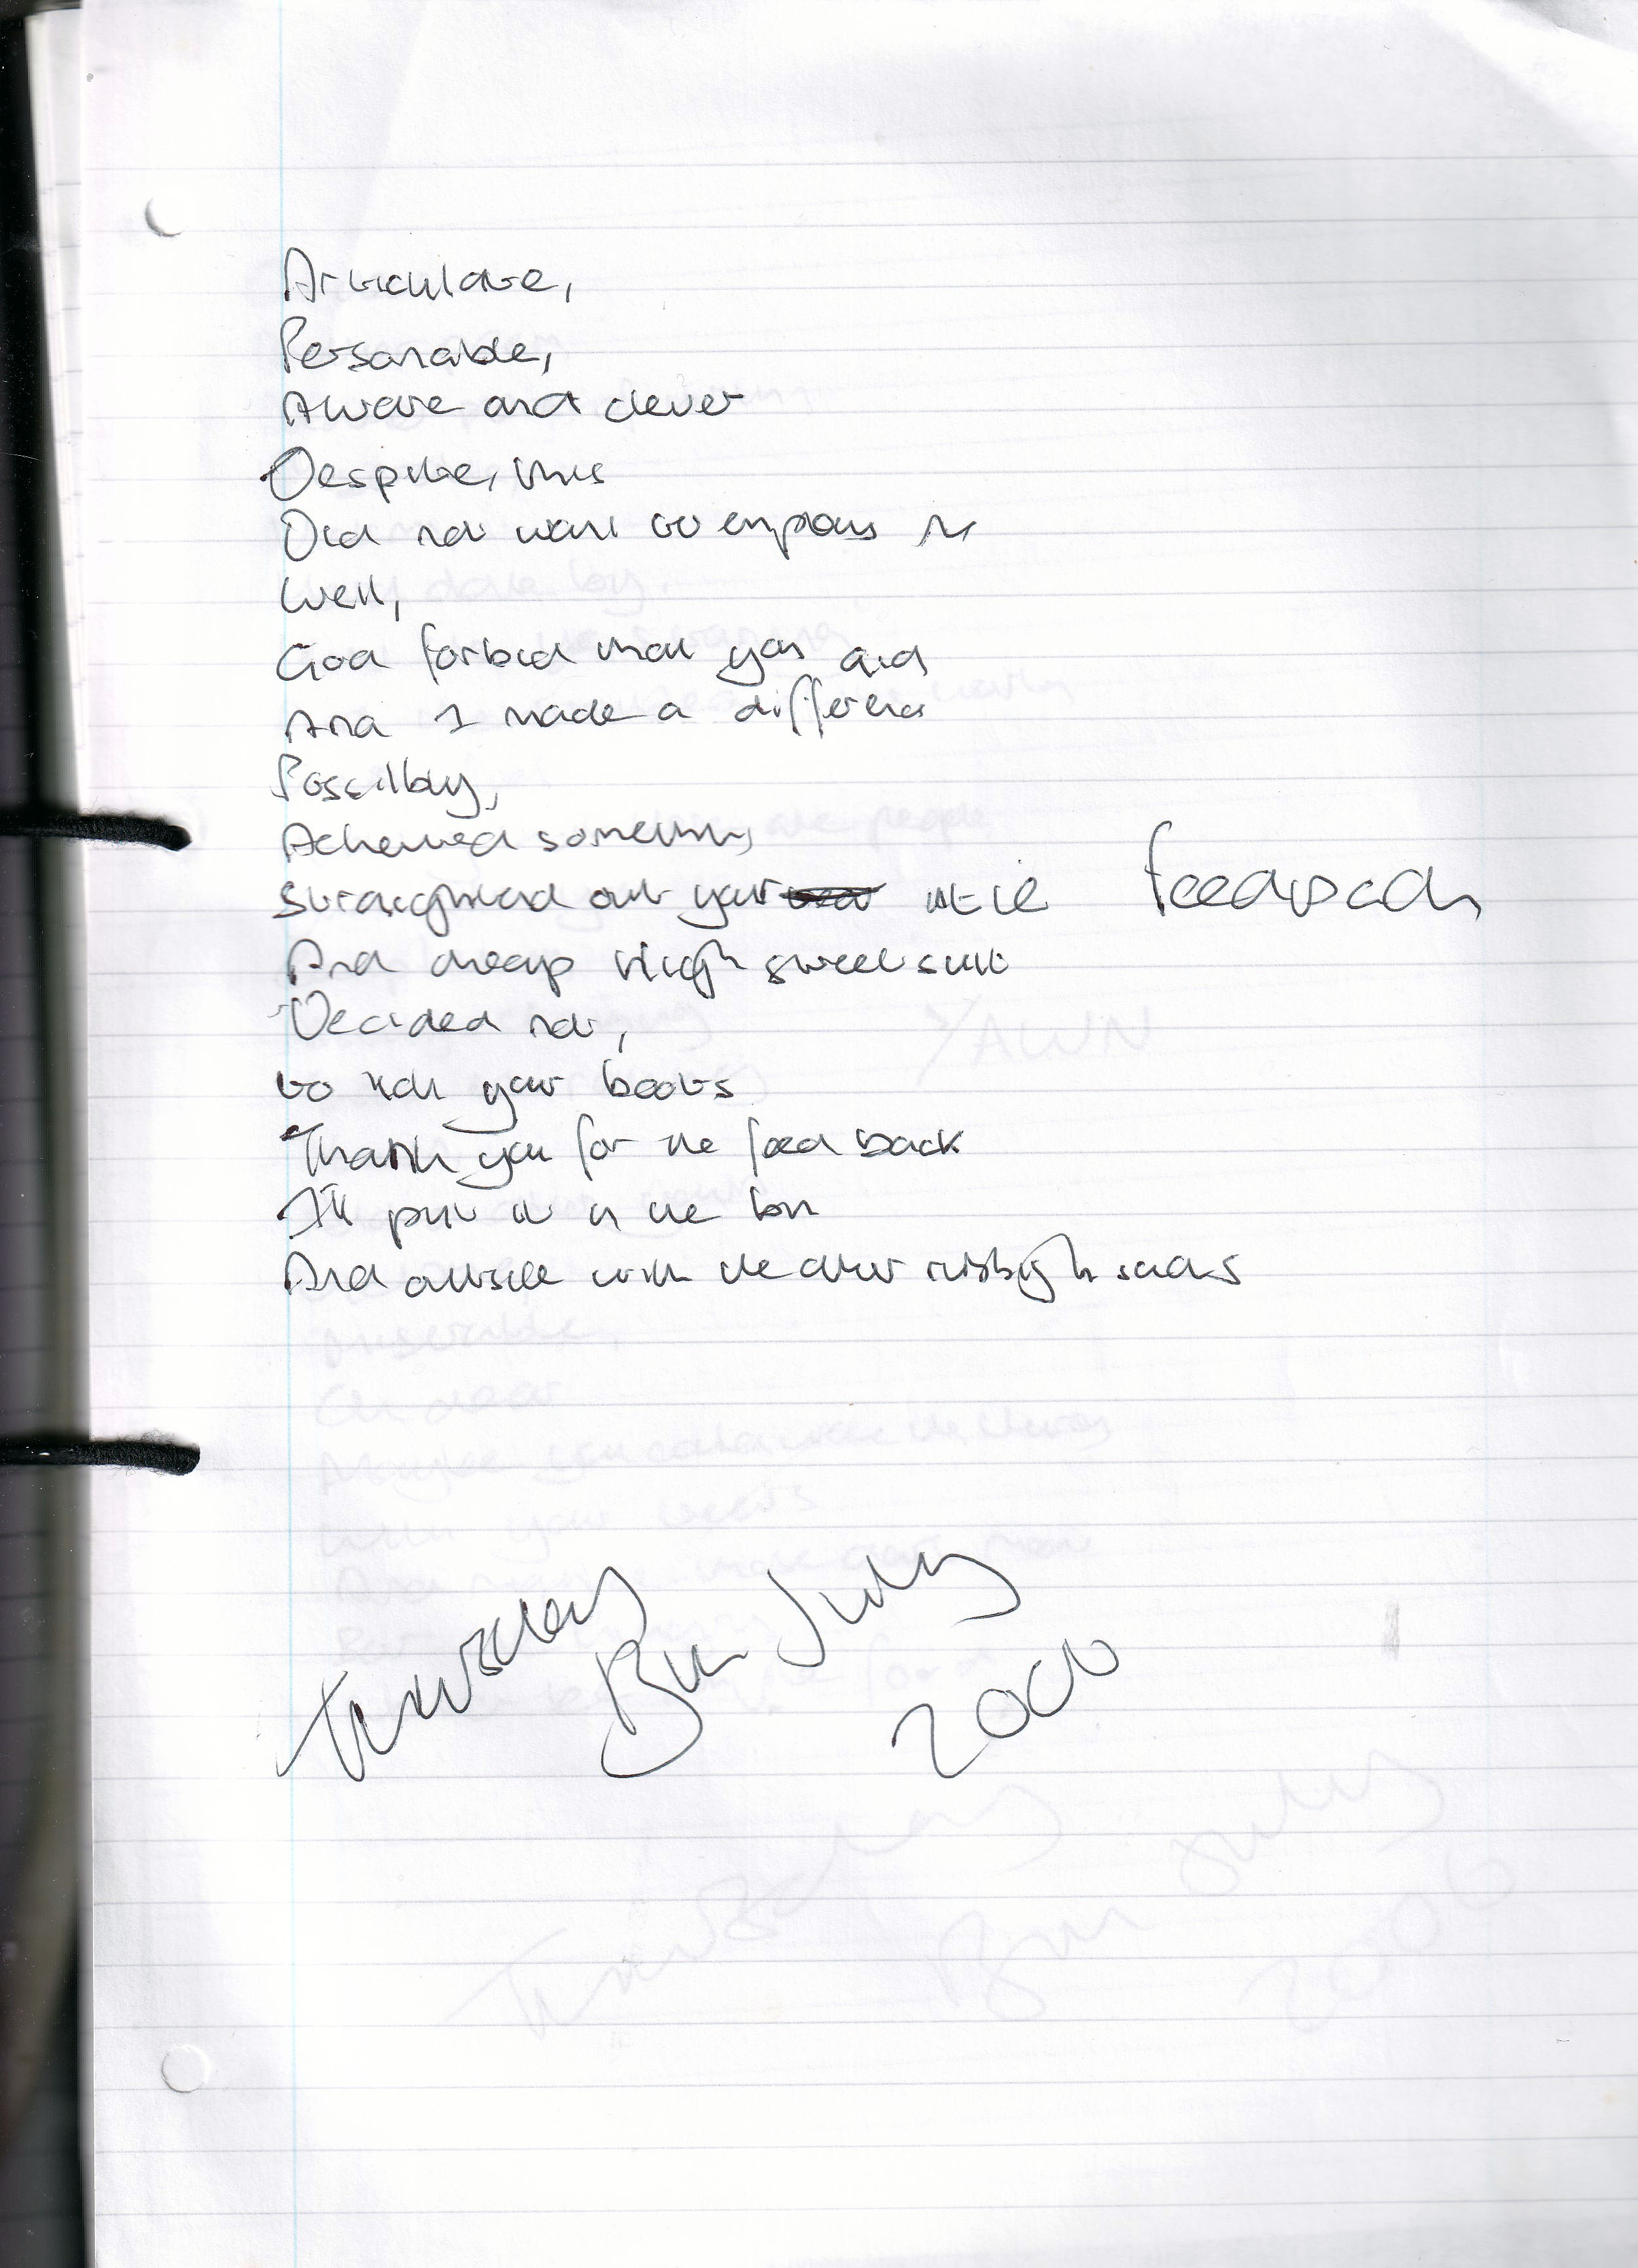 Articulate,
Personable,
Aware and clever
Despite, this
Did not want to employ me
Well,
God forbid that you did
And I made a difference
Possilby,
Achieved something
Straightend out your tie
Feedback
And cheap sweet suit
Decided not,
to lick your boots
Thank you for the feed back
I'll put it in the bin
And outside with the other rubbish sacks
Thursday
8th July
2006